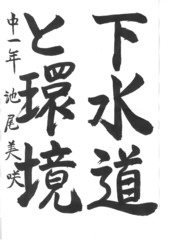 下水道
と環境
中一年 池尾美咲